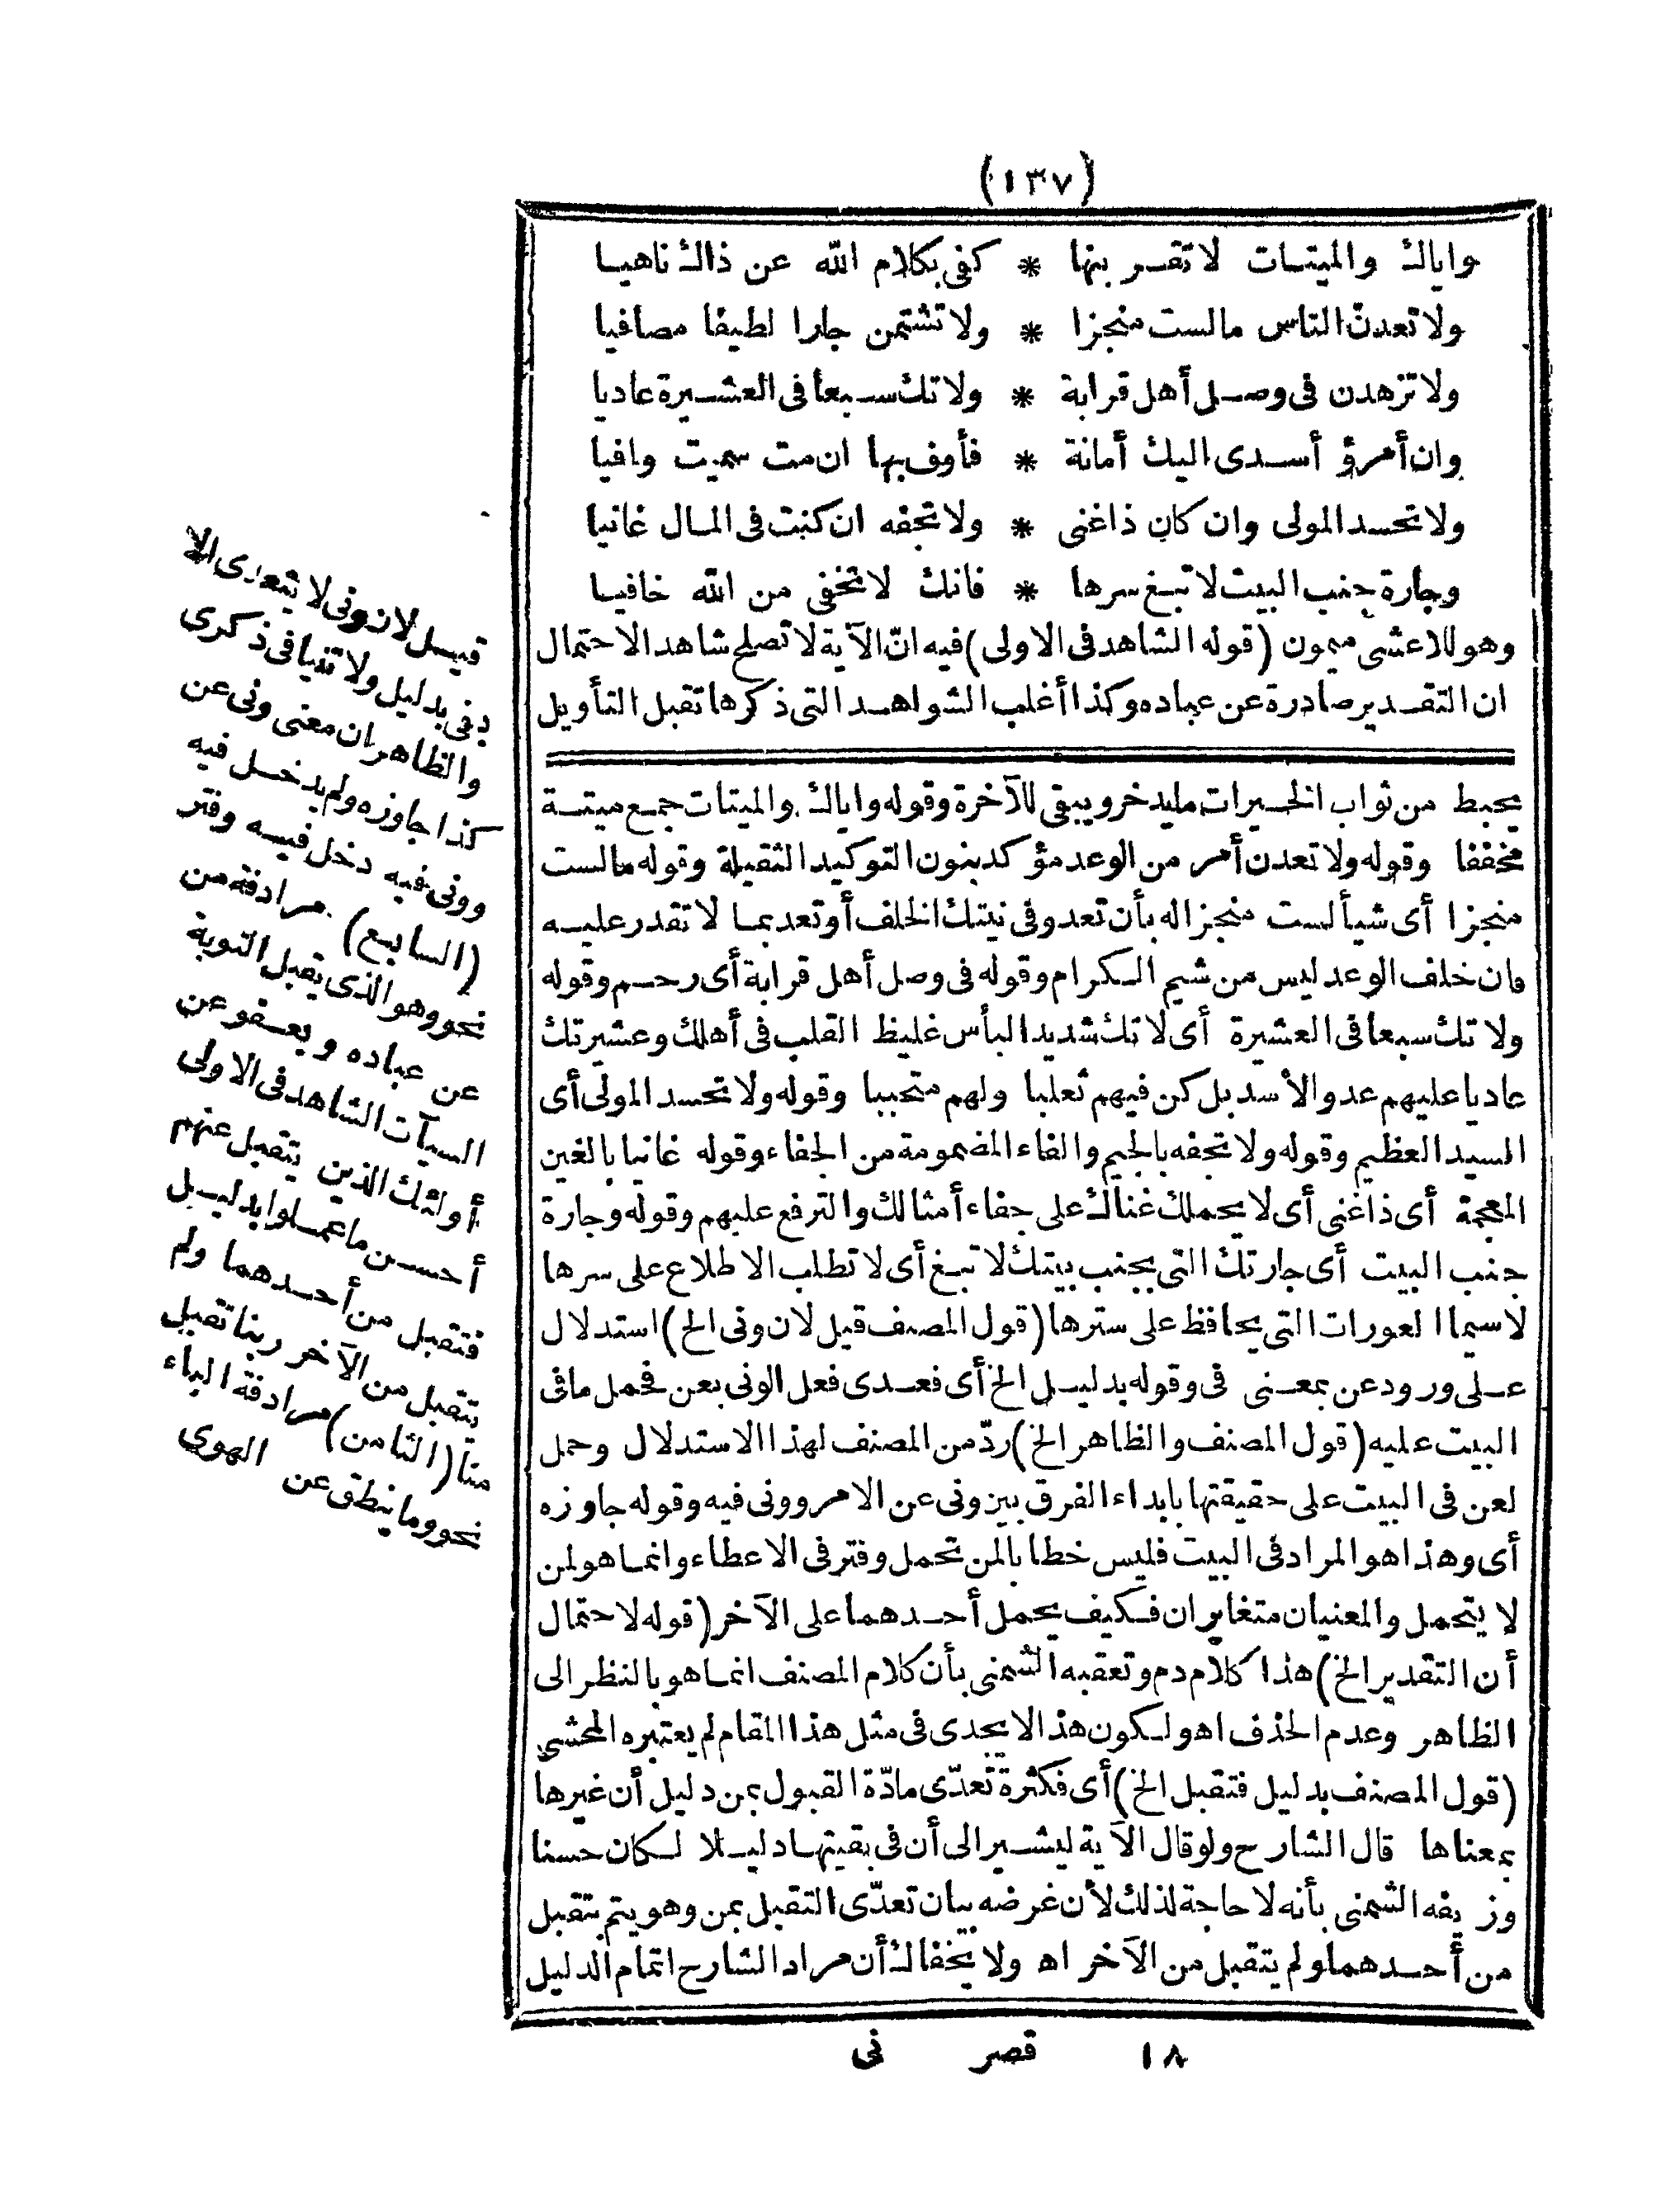 (١٣٧)
واياك والميتات لا تقربنها * كفى بكلام الله عن ذاك ناهيا
ولا تعدنّ الناس مالست منجزا * ولا تشتمن جارا لطيفا مصافيا
ولا تزهدن فى وصل أهل قرابة * ولا تك سبعا فى العشيرة عاديا
وان أمرؤ أسدى اليك أمانة * فأوف بها ان مت سميت وافيا
ولا تحسد المولى وان كان ذا غنى * ولا تجفه ان كنت فى المال غانيا
وجارة جنب البيت لا تبغ سرها * فانك لا تخفى من الله خافيا
وهو للاعشى ميمون (قوله الشاهد فى الاولى) فيه انّ الآية لا تصلح شاهد الاحتمال
ان التقدير صادرة عن عباده وكذا أغلب الشواهد التى ذكرها تقبل التأويل
يحبط من ثواب الخيرات مايدخر ويبقى للآخرة وقوله واياك والميتات جمع ميتة
مخففا وقوله ولا تعدن أمر من الوعد مؤكد بنون التوكيد الثقيلة وقوله مالست
منجزا أى شيأ لست منجزا له بأن تعد وفى نيتك الخلف أو تعد بما لا تقدر عليه
فان خلف الوعد ليس من شيم الكرام وقوله فى وصل أهل قرابة أى رحم وقوله
ولا تك سبعا فى العشيرة أى لا تك شديد البأس غليظ القلب فى أهلك وعشيرتك
عاديا عليهم عدو الأسد بل كن فيهم ثعلبا ولهم متحببا وقوله ولا تحسد المولى أى
السيد العظيم وقوله ولا تجفه بالجيم والفاء المضمومة من الجفاء وقوله غانيا بالغين
المعجمة أى ذا غنى أى لا يحملك غناك على جفاء أمثالك والترفع عليهم وقوله وجارة
جنب البيت أى جارتك التى بجنب بيتك لا تبغ أى لا تطلب الاطلاع على سرها
لا سيما العورات التى يحافظ على سترها (قول المصنف قيل لان ونى الخ) استدلال
على ورود عن بمعنى فى وقوله بدليل الخ أى فعدى فعل الونى بعن فحمل مافى
البيت عليه (قول المصنف والظاهر الخ) ردّ من المصنف لهذا الاستدلال وحمل
لعن فى البيت على حقيقتها بابداء الفرق بين ونى عن الامر وونى فيه وقوله جاوزه
أى وهذا هو المراد فى البيت فليس خطابا لمن تحمل وفتر فى الاعطاء وانما هو لمن
لا يتحمل والمعنيان متغايران فكيف يحمل أحدهما على الآخر (قوله لاحتمال
أن التقدير الخ) هذا كلام دم وتعقبه الشمنى بأن كلام المصنف انما هو بالنظر الى
الظاهر وعدم الحذف اه ولكون هذا لا يجدى فى مثل هذا المقام لم يعتبره المحشى
(قول المصنف بدليل فتقبل الخ) أى فكثرة تعدّى مادّة القبول بمن دليل أن غيرها
بمعناها قال الشارح ولو قال الآية ليشير الى أن فى بقيتها دليلا لكان حسنا
وزيفه الشمنى بأنه لا حاجة لذلك لأن غرضه بيان تعدّى التقبل بمن وهو يتم بتقبل
من أحدهما ولم يتقبل من الآخر اه ولا يخفاك أن مراد الشارح اتمام الدليل
١٨ قصر نى
قيل لان ونى لا يتعدى الا
بفى بدليل ولا تنيا فى ذكرى
والظاهر ان معنى ونى عن
كذا جاوزه ولم يدخل فيه
وونى فيه دخل فيه وفتر
(السابع) مرادفة من
نحو وهو الذى يقبل التوبة
عن عباده ويعفو عن
السيآت الشاهد فى الاولى
أولئك الذين يتقبل عنهم
أحسن ما عملوا بدليل
فتقبل من أحدهما ولم
يتقبل من الآخر ربنا تقبل
منا (الثامن) مرادفة الباء
نحو وما ينطق عن الهوى